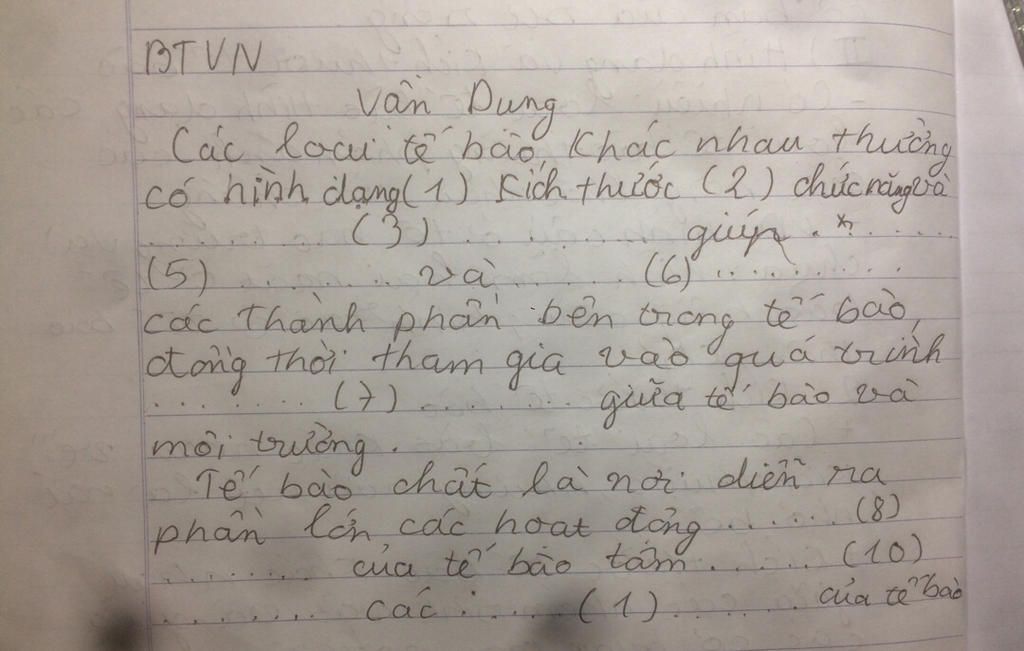 BTVN
Vân Dung
Các loai tế bào, Khác nhau thường
có hình dạng (1) Kích thước (2) chức năng và
........... (3) ............ giúp .........
(5) ......... và (6) ..........
các thành phần bên trong tế bào,
đồng thời tham gia vào quá trình
........ (7) ........ giữa tế bào và
môi trường.
Tế bào chất là nơi diễn ra
phần lớn các hoat động ...... (8)
......... của tế bào tám ..... (10)
......... các ...... (1) ........ của tế bào